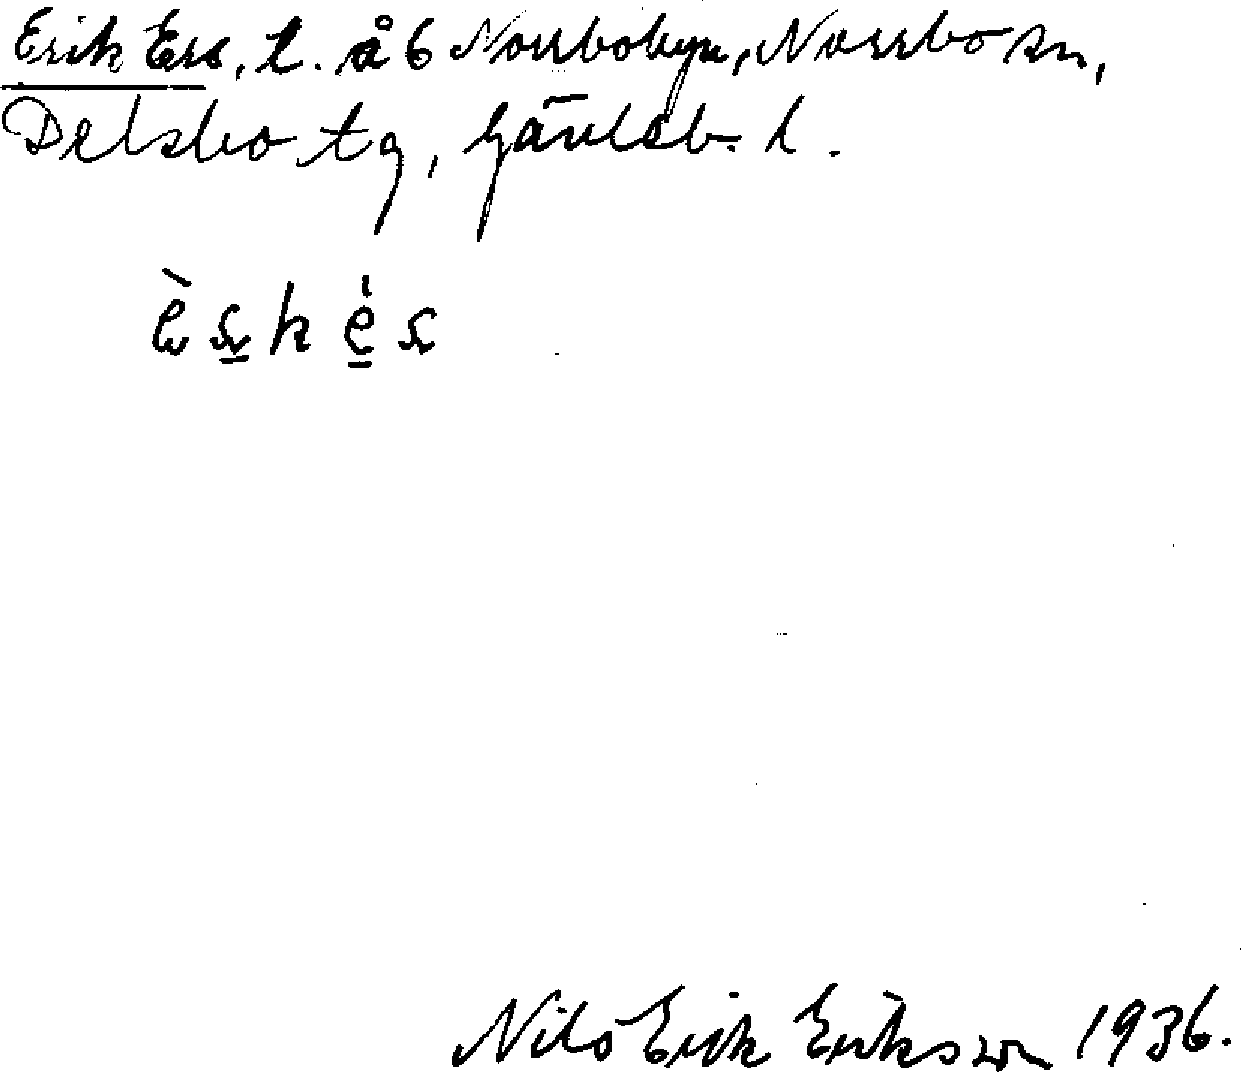 Erik Ers, l. å 6 Norrbobyn, Norrbo sn,
Delsbo tg, Gävleb. l.
èskés
Nils Erik Eriksson 1936.